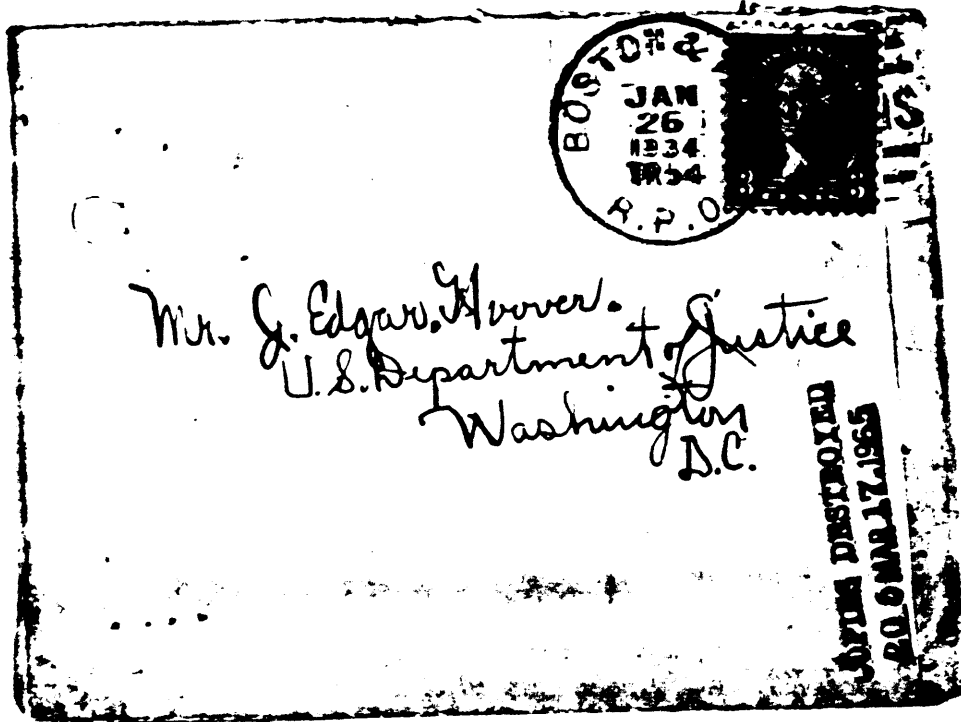 BOSTON &
JAN
26
1934
TR54
R.P.O
3 3
Mr. J. Edgar. Hoover.
U.S. Department of Justice
Washington
D.C.
COPIES DESTROYED
20 6 MAR 17 1965